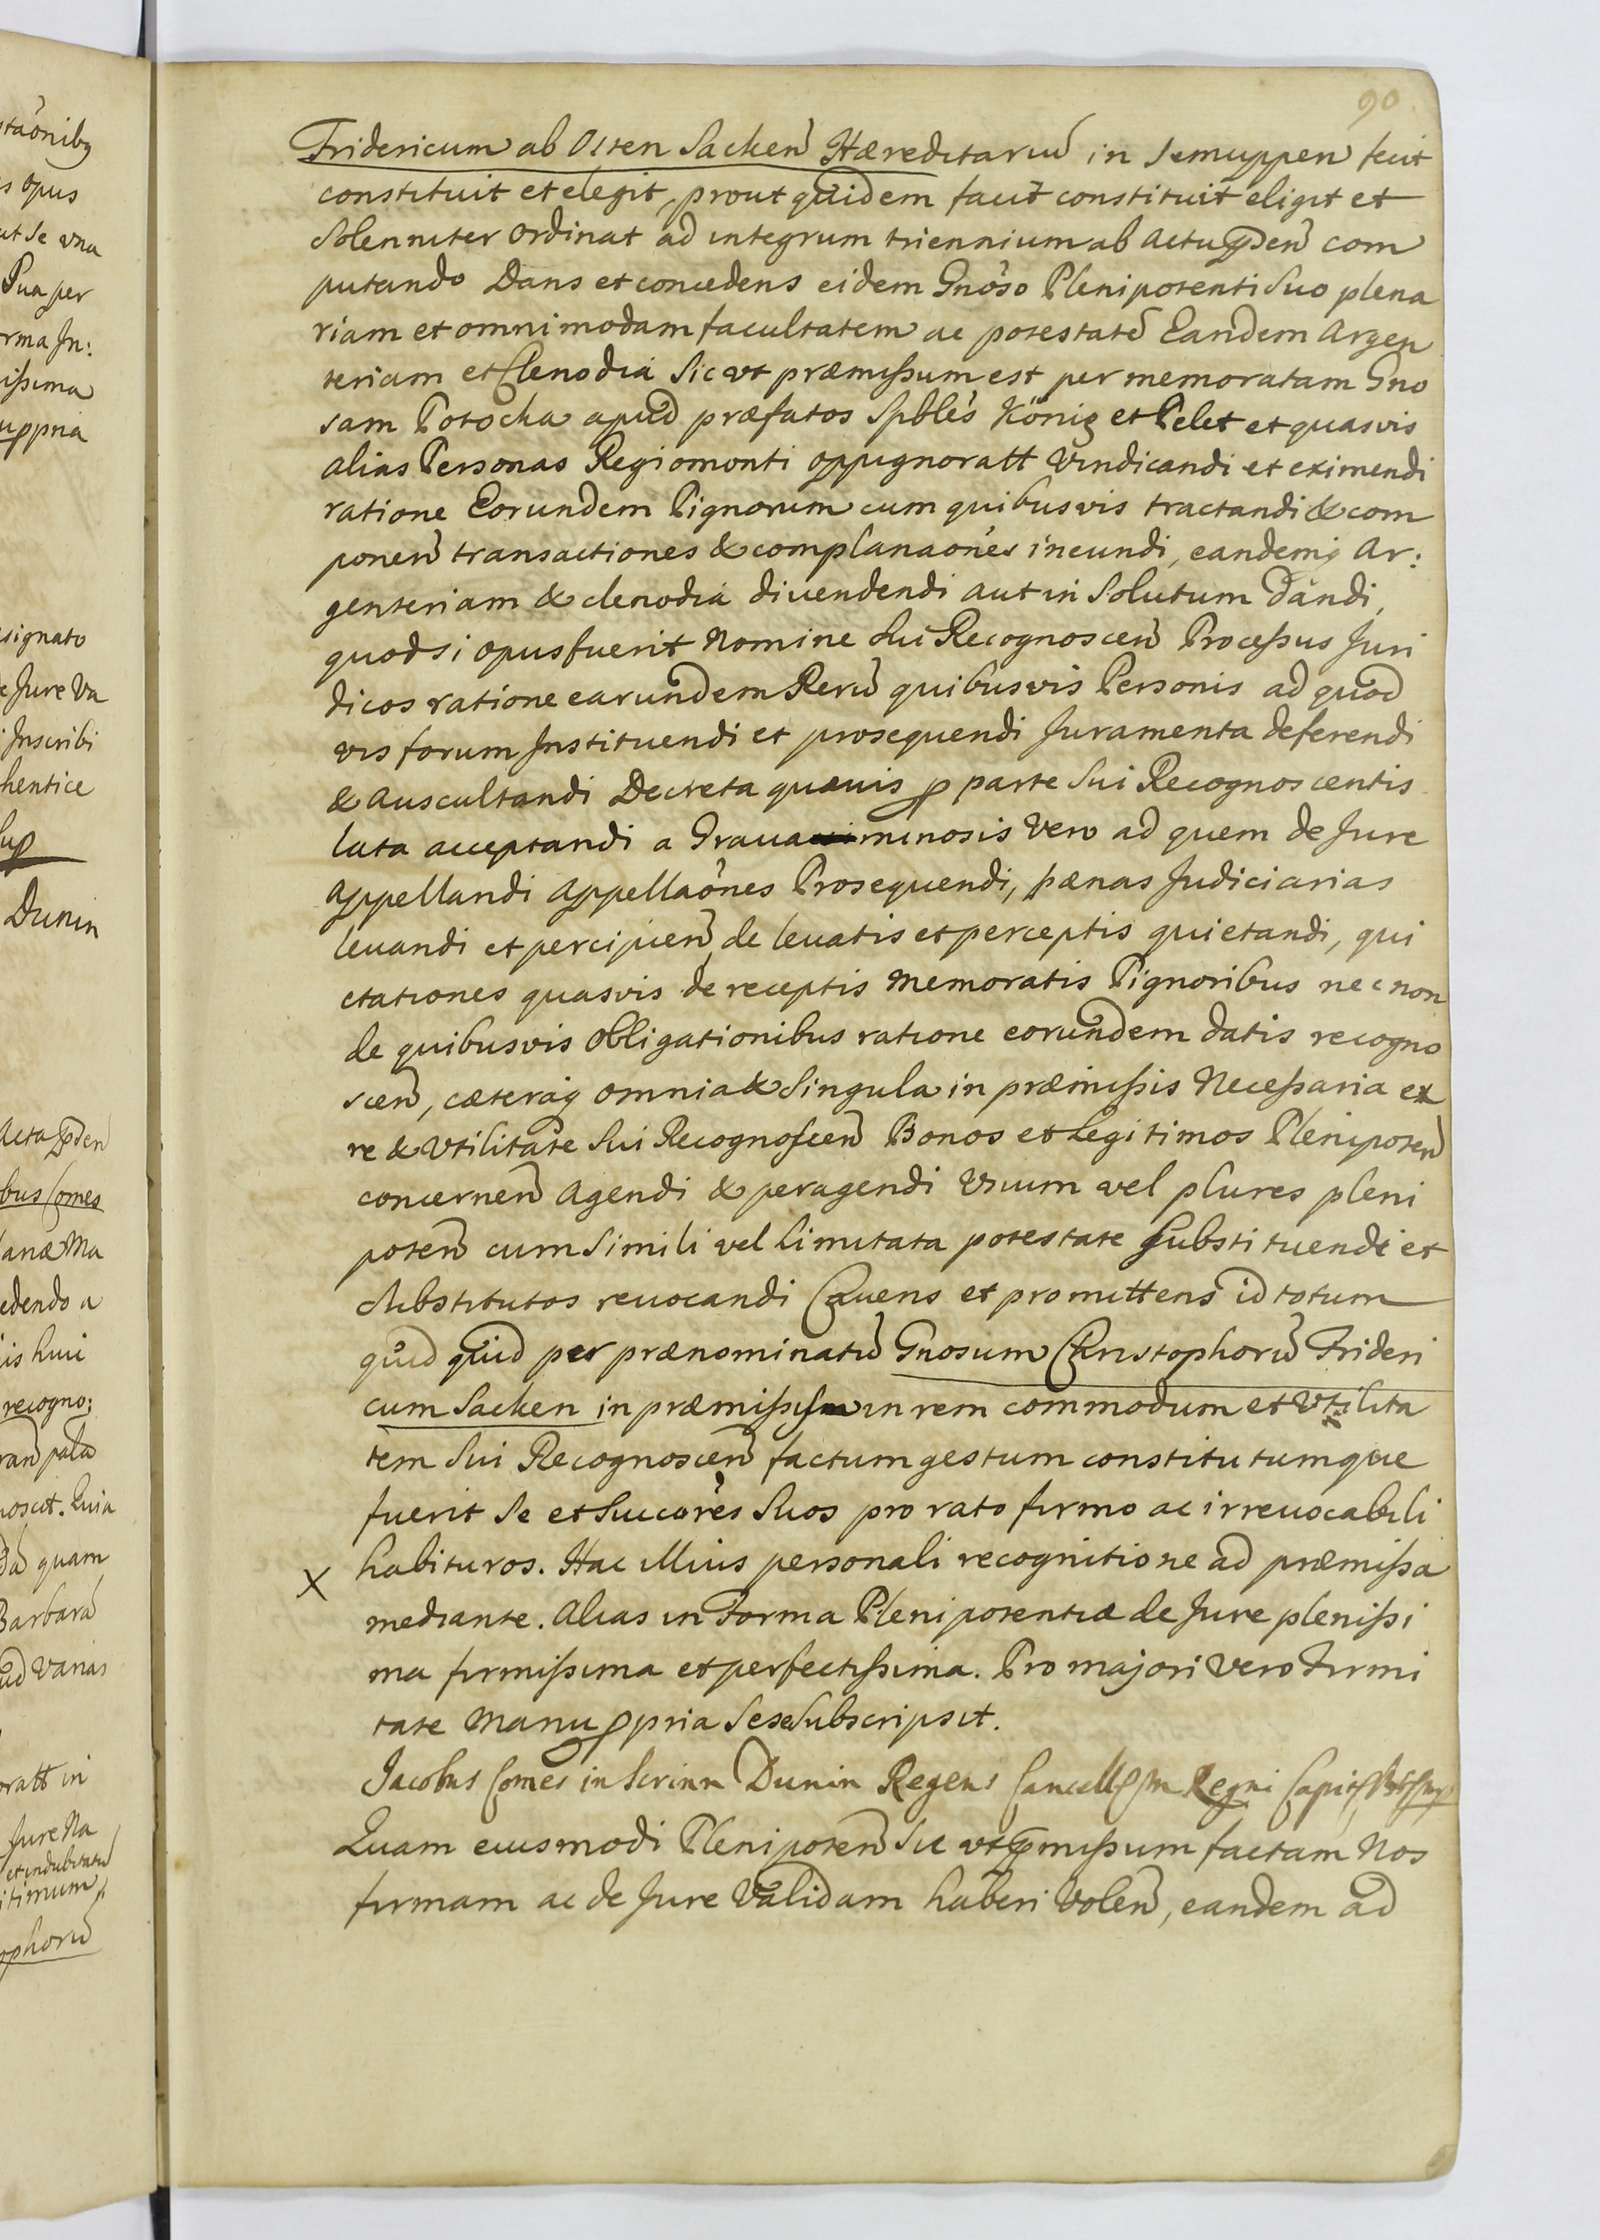 90
Fridericum ab Osten Sacken Hæreditariū in Semuppen fecit
constituit et elegit, prout quidem facit constituit eligit et
Solenniter Ordinat ad integrum triennium ab actu pñsen com
putando Dans et concedens eidem Gnoso Plenipotenti Suo plena
riam et omnimodam facultatem ac potestatē Eandem Argen
teriam et Clenodia Sic ut præmissum est per memoratam Gno
sam Potocka apud præfatos Spbles König et Pelet et quasvis
alias Personas Regiomonti oppugnoratt Vindicandi et eximendi
ratione Eorundem Pignorum cum quibusvis tractandi & com
ponen transactiones & complanaones ineundi, eandemq Ar:
genteriam & clenodia divendendi aut in Solutum dandi,
quodsi opus fuerit Nomine Sui Recognoscen Processus Juri
dicos ratione earundem Rerū quibusvis Personis ad quod
vis forum Instituendi et prosequendi Juramenta deferendi
& Auscultandi Decreta quævis p parte Sui Recognoscentis
lata acceptandi a Gravaminosis Vero ad quem de Jure
Appellandi Appellaones Prosequendi, pænas Judiciarias
levandi et percipien, de levatis et perceptis quietandi, qui
etationes quasvis de receptis Memoratis Pignoribus nec non
de quibusvis Obligationibus ratione eorundem datis recogno
scen, cæteraq omnia & Singula in præmissis Necessaria ex
re & Utilitate Sui Recognoscen Bonos et Legitimos Plenipoten
concernen Agendi & peragendi Unum vel plures pleni
poten cum Simili vel limitata potestate Substituendi et
Substitutos revocandi Cavens et promittens id totum
quid quid per prænominatū Gnosum Christophorū Frideri
cum Sacken in præmissis in rem commodum et Utilita
tem Sui Recognoscen factum gestum constitutumque
fuerit Se et Succores Suos pro rato firmo ac irrevocabili
X habituros. Hac Illius personali recognitione ad præmissa
mediante. Alias in Forma Plenipotentiæ de Jure plenissi
ma firmissima et perfectissima. Pro majori Vero Firmi
tate Manu ppria Sese Subscripsit.
Jacobus Comes in Scrinn Dunin Regens Cancell Regni
Quam eiusmodi Plenipoten Sic ut pmissum factam Nos
firmam ac de Jure Validam haberi Volen, eandem ad